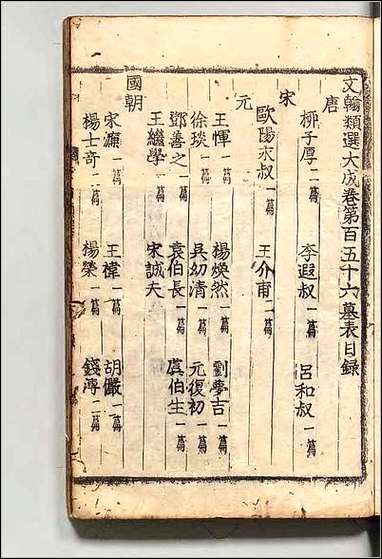 文翰類選大成卷第百五十六墓表目錄
唐
柳子厚二篇 李遐叔一篇 呂和叔一篇
宋
歐陽永叔一篇 王介甫一篇
元
王惲一篇 楊煥然一篇 劉夢吉一篇
徐琰一篇 吳幼清一篇 元復初一篇
鄧善之一篇 袁伯長一篇 虞伯生一篇
王繼學 宋誠夫
國朝
宋濂一篇 王褘一篇 胡儼二篇
楊士奇一篇 楊榮一篇 錢溥二篇